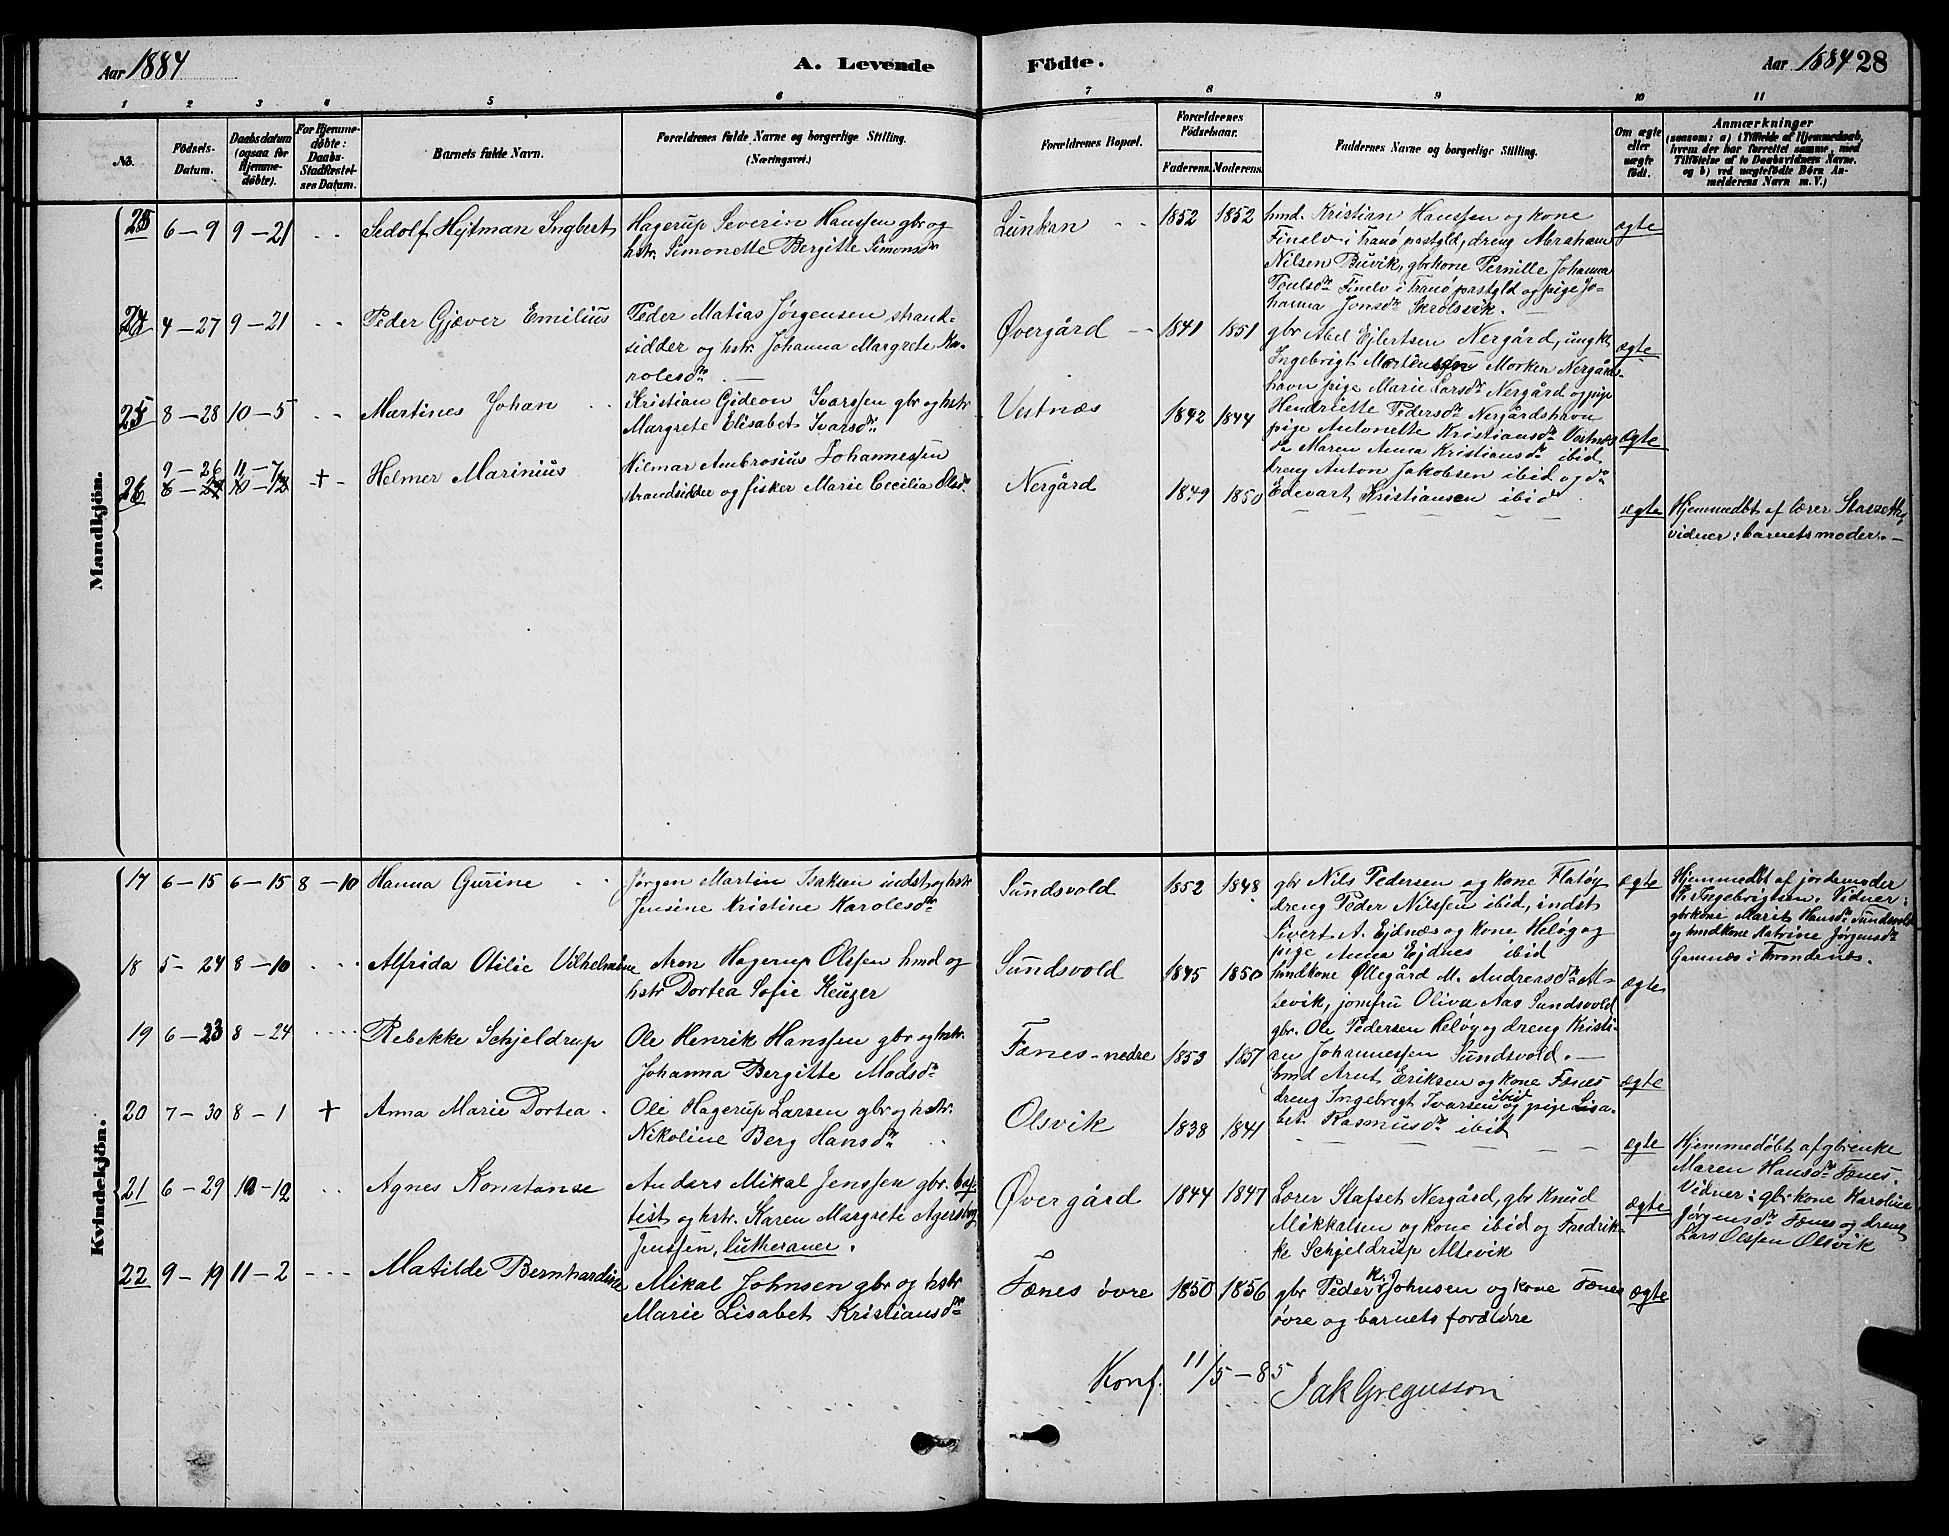 Aar 1884
A. Levende
Födte.
Aar 1884 28
1 2 3 4 5 6 7 8 9 10 11
No.
Födsels-Datum.
Daabsdatum (ogsaa for Hjemme-döbte).
For Hjemme-döbte: Daabs-Stadfæstel-ses Datum.
Barnets fulde Navn.
Forældrenes fulde Navne og borgerlige Stilling.
(Næringsvei.)
Forældrenes Bopæl.
Forældrenes Födselsaar.
Faderens. Moderens.
Faddernes Navne og borgerlige Stilling.
Om ægte eller uægte födt.
Anmærkninger
(saasom: a) i Tilfælde af Hjemmedaab, hvem der har forrettet samme, med Tilföielse af to Daabsvidners Navne. og b) ved uægtefödte Börn An-melderens Navn m. V.)
Mandkjön.
23 6-9 9-21 Sedolf Hejtman Ingbert
Hagerup Severin Hanssen gbr og
hstr. Simonette Bergitte Simonsdr
Lunkan 1852 1852
hmd. Kristian Hanssen og kone
Finelv i Tranø pastgld, dreng Abraham
Nilsen Buvik, gbrkone Pernille Johanna
Poulsdr Finelv i Tranø pastgld og pige Jo-
hanna Jonsdr Skrolsvik.
ægte
24 4-27 9-21 Peder Gjæver Emilius
Peder Matias Jørgensen, strand-
sidder og hstr. Johanna Margrete Ka-
rolesdr
Øvergård 1841 1851
gbr Abel Ejlertsen Nergård, ungk.
Ingebrigt Mortensen Morken Nergårds-
havn pige Marie Larsdr Nergård og pige
Hendriette Pedersdr Nergårdshavn
ægte
25 8-28 10-5 Martines Johan
Kristian Gideon Ivarssen gbr og hstr
Margrete Elisabet Ivarsdr.
Vestnæs 1842 1844
pige Antonette Kristiansdr Vestnæs
do Maren Anna Kristiansdr ibid
dreng Anton Jakobsen ibid og do
Edevart Kristiansen ibid
ægte
26 9-26 11-7 + Helmer Marinius
Hilmar Ambrosius Johannessen
strandsidder og fisker Marie Cecilia Olsdr.
Nergård 1849 1850
ægte
Hjemmedøbt af lærer Starseth,
vidner: barnets moder.
Kvindekjön.
17 6-15 6-15 8-10 Hanna Gurine
Jørgen Martin Isaksen indst og hstr
Jensine Kristine Karolesdr
Sundsvold 1852 1848
gbr Nils Pedersen og kone Flatøy
dreng Peder Nilssen ibid, indst
Sivert A. Ejdnæs og kone Heløy og
pige Anna Ejdnes ibid
ægte
Hjemmedøbt af jordemoder
Ingebrigtsen. Vidner:
gbrkone Marit Hansdr. Sundsvold
og hmdkone Katrine Jørgensdr
Gamnæs i Trondenæs.
18 5-24 8-10 Alfrida Otilie Vilhelmine
Aron Hagerup Olssen hmd og
hstr Dortea Sofie Keuzer
Sundsvold 1845 1850
hmdkone Øllegård M. Andreasdr Al-
tevik, jomfru Oliva Aas Sundsvold
gbr. Ole Pedersen Heløy og dreng Kristi-
an Johannessen Sundsvold.
ægte
19 6-23 8-24 Rebekke Schjeldrup
Ole Henrik Hanssen gbr og hstr.
Johanna Bergitte Madsdr
Fænes-nedre 1853 1857
hmd Arnt Eriksen og kone Fænes
dreng Ingebrigt Ivarsen ibid og pige Lisa-
bet Rasmusdr ibid
ægte
20 7-30 8-1 + Anna Marie Dortea
Ole Hagerup Larsen gbr og hstr.
Nikoline Berg Hansdr
Olsvik 1838 1841
ægte
Hjemmedøbt af gbrenke
Maren Hansdr Fænes.
Vidner: gbrkone Karoline
Jørgensdr Fænes og dreng
Lars Olssen Olsvik
21 6-29 10-12 Agnes Konstanse
Anders Mikal Jenssen gbr. bap-
tist og hstr. Karen Margrete Agersborg
Jenssen, lutheraner.
Øvergård 1844 1847
Lærer Stafset Nergård, gbr Knud
Mikkalsen og kone ibid og Fredrik-
ke Schjeldrup Altevik
ægte
22 9-19 11-2 Matilde Bernhardine
Mikal Johnsen gbr og hstr
Marie Lisabet Kristiansdr
Fænes øvre 1850 1856
gbr Peder K. Johnsen og kone Fænes
øvre og barnets forældre
ægte
Konf. 11/5-85
Jak Gregusson